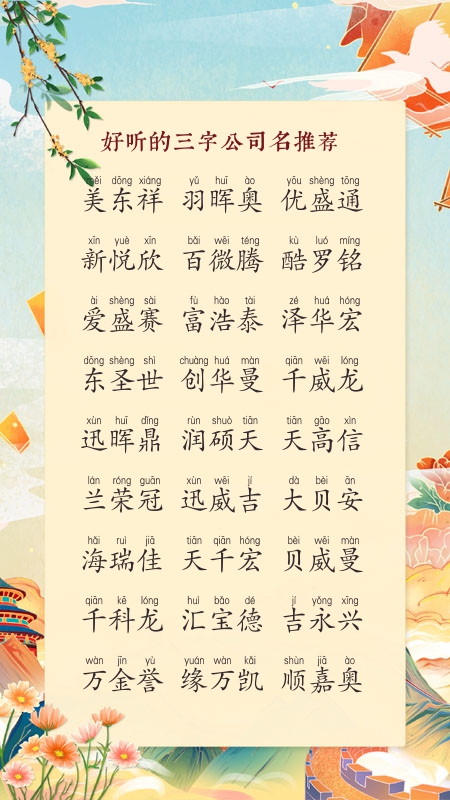 好听的三字公司名推荐
měi dōng xiáng yǔ huī ào yōu shèng tōng
美东祥 羽晖奥 优盛通
xīn yuè xīn bǎi wēi téng kù luó míng
新悦欣 百微腾 酷罗铭
ài shèng sài fù hào tài zé huá hóng
爱盛赛 富浩泰 泽华宏
dōng shèng shì chuàng huá màn qiān wēi lóng
东圣世 创华曼 千威龙
xùn huī dǐng rùn shuò tiān tiān gāo xìn
迅晖鼎 润硕天 天高信
lán róng guān xùn wēi jí dà bèi ān
兰荣冠 迅威吉 大贝安
hǎi ruì jiā tiān qiān hóng bèi wēi màn
海瑞佳 天千宏 贝威曼
qiān kē lóng huì bǎo dé jí yǒng xīng
千科龙 汇宝德 吉永兴
wàn jīn yù yuán wàn kǎi shùn jiā ào
万金誉 缘万凯 顺嘉奥